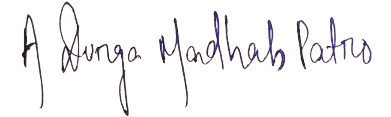 A Durga Madhab Patro